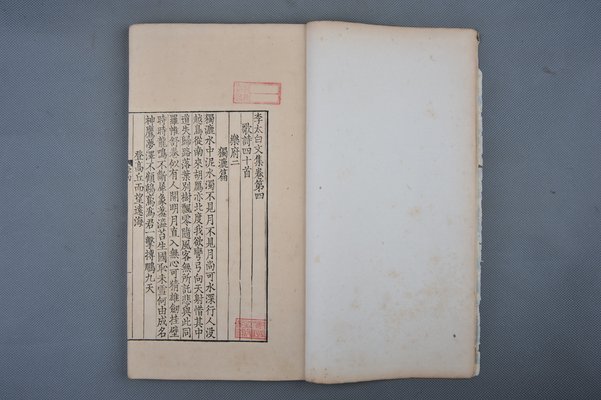 李太白文集卷第四
歌詩四十首
樂府二
獨漉篇
獨漉水中泥水濁不見月不見月尚可水深行人沒
越鳥從南來胡鴈亦北度我欲彎弓向天射惜其中
道失歸路落葉別樹飄零隨風客無所託悲與此同
羅帷舒卷似有人開明月直入無心可猜雄劍挂壁
時時龍鳴不斷犀象羞澁苔生國恥未雪何由成名
神鷹夢澤不顧鴟鳶為君一擊摶鵬九天
登高丘而望遠海